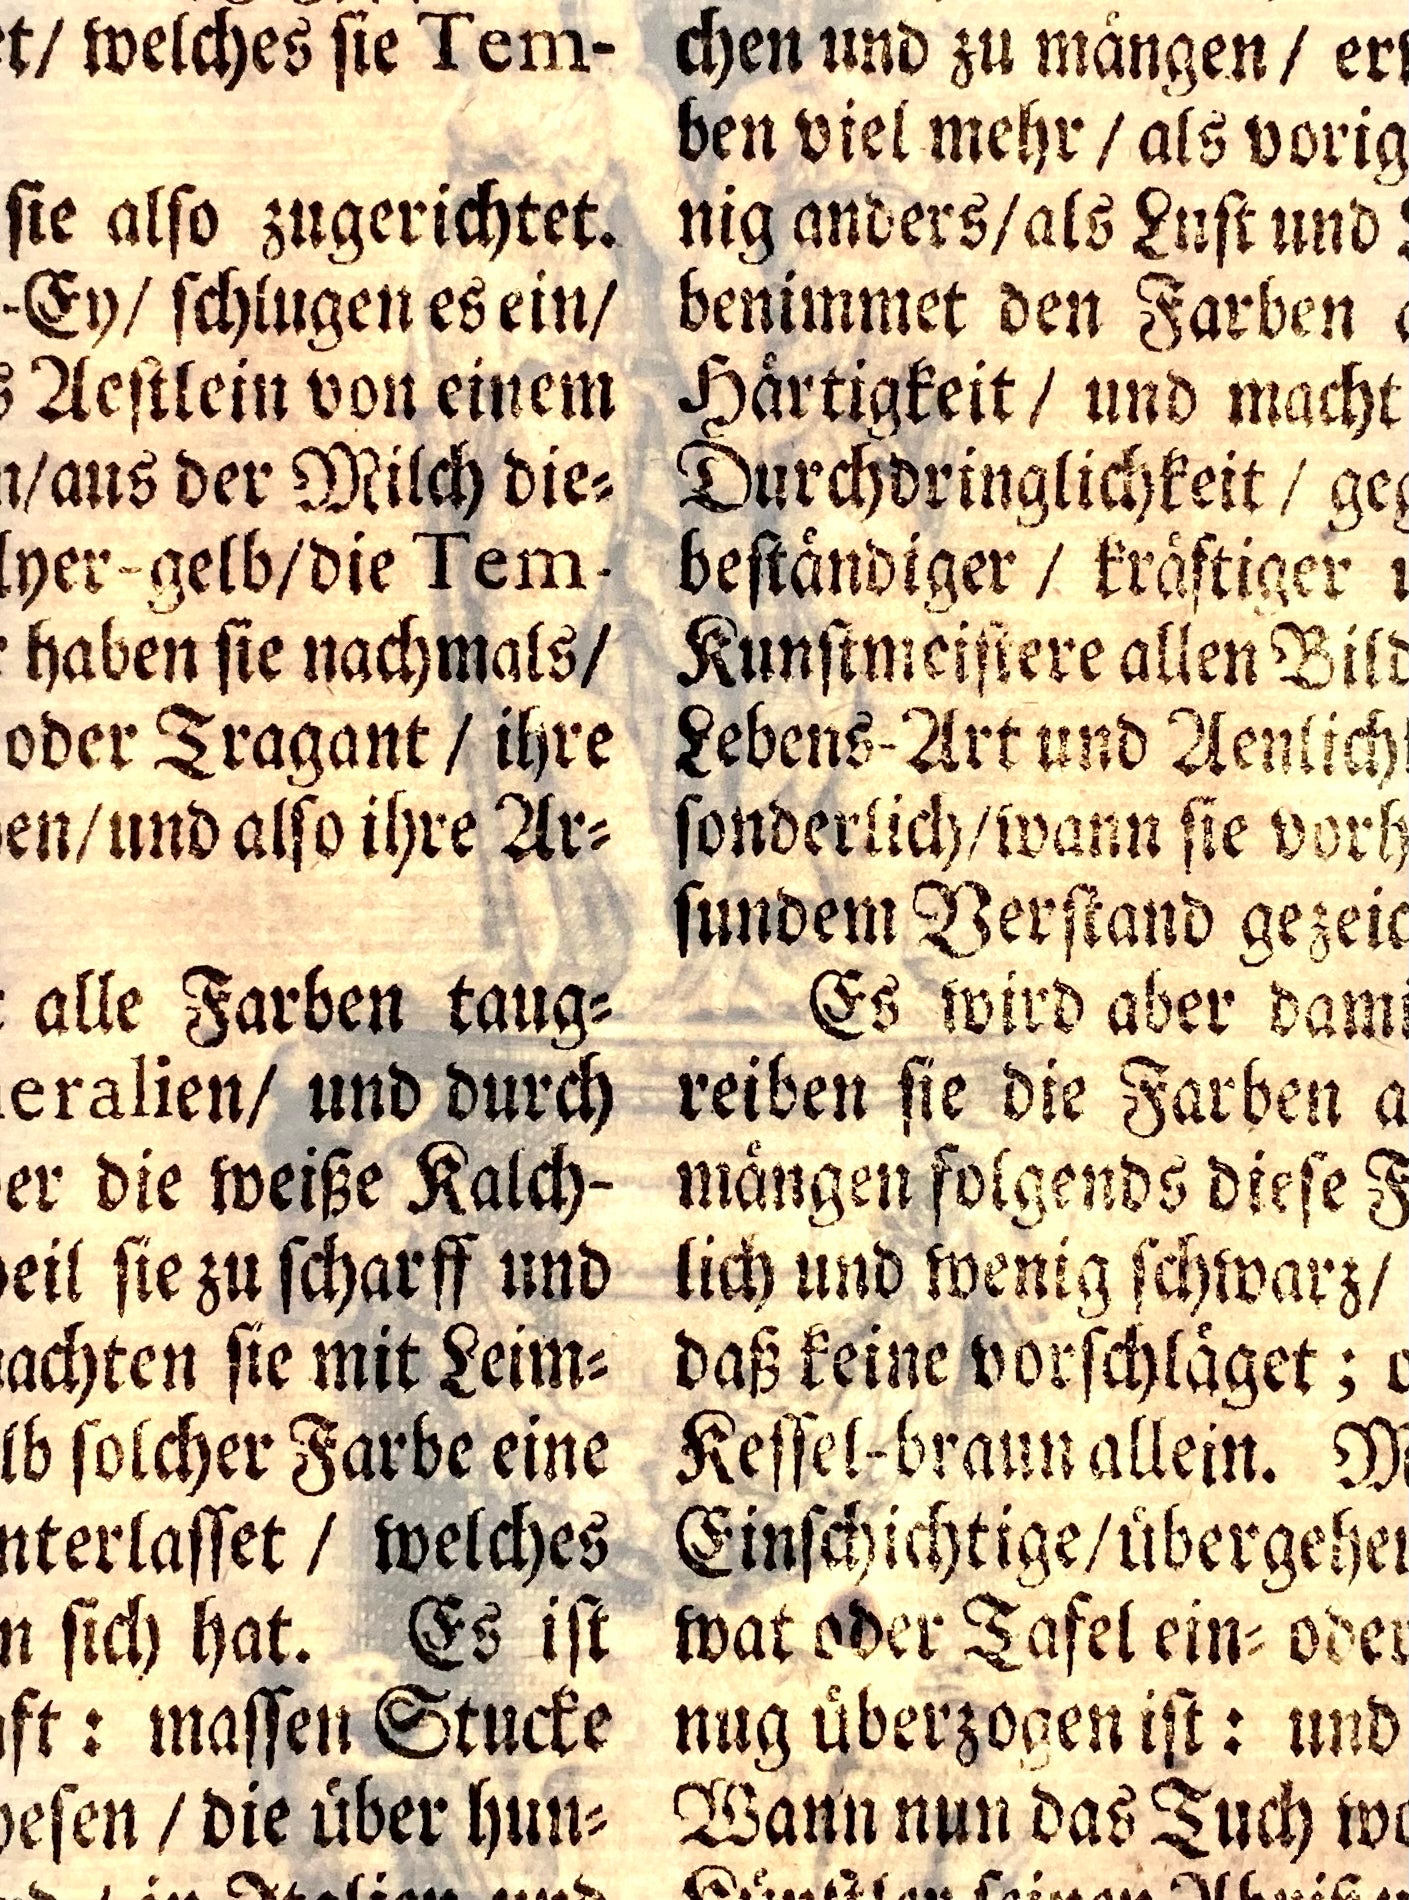 welches sie Tem-
sie also zugerichtet.
-Ey/ schlugen es ein/
Aestlein von einem
aus der Milch die-
gelb/die Tem-
haben sie nachmals/
oder Tragant / ihre
und also ihre Ar-
alle Farben taug-
und durch
die weiße Kalch-
sie zu scharff und
sie mit Leim-
solcher Farbe eine
welches
sich hat. Es ist
massen Stucke
die über hun-
chen und zu mängen /
ben viel mehr / als
nig anders/als Lust und
benimmet den Farben
Härtigkeit / und macht
Durchdringlichkeit /
beständiger / kräftiger
Kunstmeistere allen
Lebens-Art und
sonderlich/wann sie
sundem Verstand
Es wird aber
reiben sie die Farben
mängen folgends diese
lich und wenig schwarz/
daß keine vorschläget ;
Kessel-braun allein.
Einschichtige/
wat oder Tafel ein- oder
nug überzogen ist : und
Wann nun das Tuch